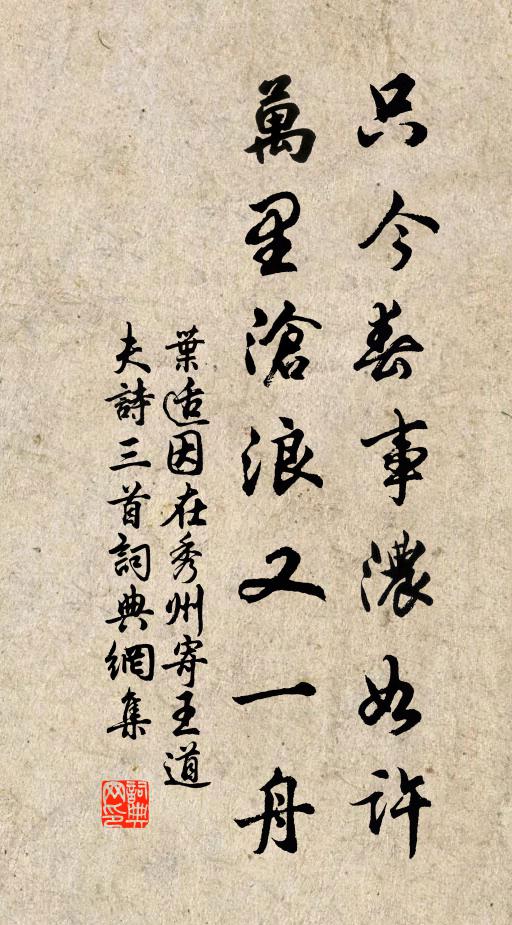 只今春事濃如許
萬里滄浪又一舟
葉适因在秀州寄王道
夫詩三首詞典網集
詞典网印